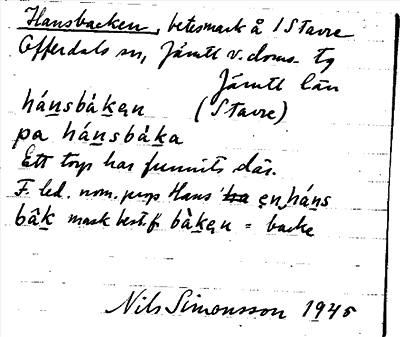 Hansbacken, betesmark å 1 Stavre
Offerdals sn, Jämtl v. doms. tg
Jämtl län
hánsbákęn (Stavre)
pa hánsbáka
Ett torp har funnits där.
F. led. nom. prop Hans en háns
bâk mask best. f. bàkęn = backe
Nils Simonsson 1945